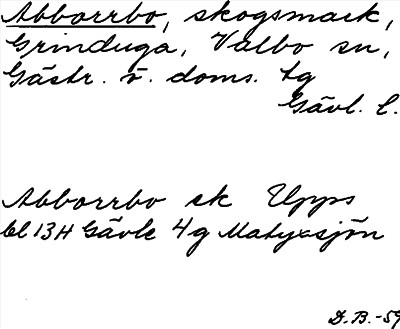 Abborrbo, skogsmark,
Grinduga, Valbo sn,
Gästr. v. doms. tg
Gävl. l.
Abborrbo ek Upps
bl 13H Gävle 4g Matyxsjön
D.B.-59